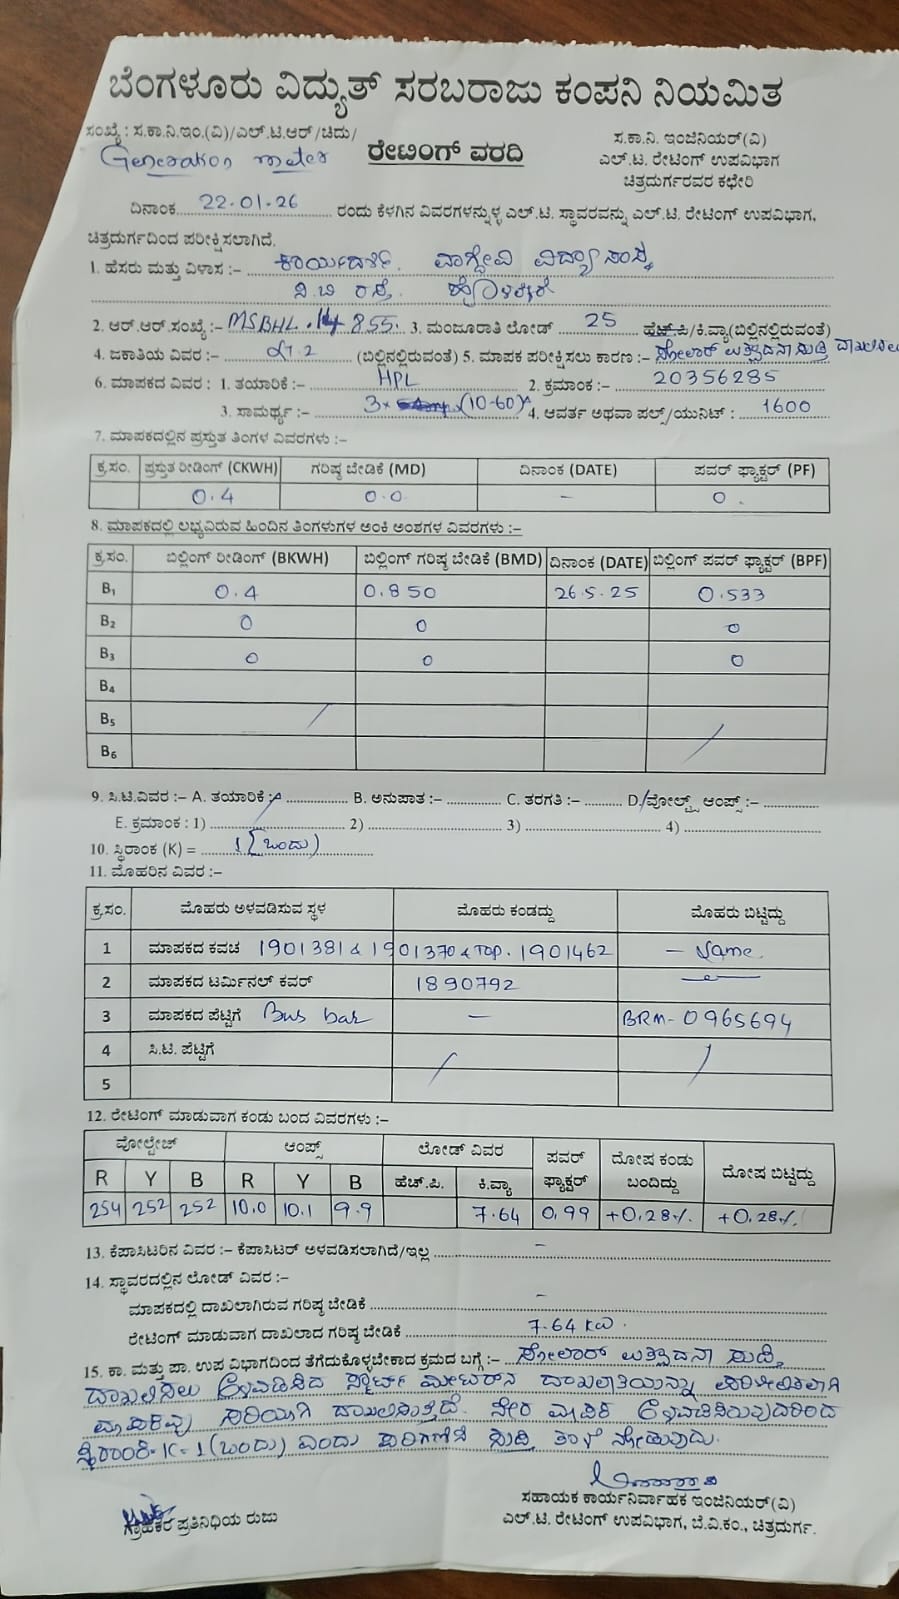 ಬೆಂಗಳೂರು ವಿದ್ಯುತ್ ಸರಬರಾಜು ಕಂಪನಿ ನಿಯಮಿತ
ಸಂಖ್ಯೆ : ಸ.ಕಾ.ನಿ.ಇಂ.(ವಿ)/ಎಲ್.ಟಿ.ಆರ್/ಚಿದು/
Generation meter
ರೇಟಿಂಗ್ ವರದಿ
ಸ.ಕಾ.ನಿ. ಇಂಜಿನಿಯರ್(ವಿ)
ಎಲ್.ಟಿ. ರೇಟಿಂಗ್ ಉಪವಿಭಾಗ
ಚಿತ್ರದುರ್ಗರವರ ಕಛೇರಿ
ದಿನಾಂಕ 22.01.26 ರಂದು ಕೆಳಗಿನ ವಿವರಗಳನ್ನುಳ್ಳ ಎಲ್.ಟಿ. ಸ್ಥಾವರವನ್ನು ಎಲ್.ಟಿ. ರೇಟಿಂಗ್ ಉಪವಿಭಾಗ,
ಚಿತ್ರದುರ್ಗದಿಂದ ಪರೀಕ್ಷಿಸಲಾಗಿದೆ.
1. ಹೆಸರು ಮತ್ತು ವಿಳಾಸ :- ಕಾರ್ಯದರ್ಶಿ, ವಾಗ್ದೇವಿ ವಿದ್ಯಾ ಸಂಸ್ಥೆ
ವಿ.ಬಿ ರಸ್ತೆ. ಹೊಳಲ್ಕೆರೆ
2. ಆರ್.ಆರ್.ಸಂಖ್ಯೆ :- MSBHL. 855. 3. ಮಂಜೂರಾತಿ ಲೋಡ್ 25 ಹೆಚ್.ಪಿ/ಕಿ.ವ್ಯಾ(ಬಿಲ್ಲಿನಲ್ಲಿರುವಂತೆ)
4. ಜಕಾತಿಯ ವಿವರ :- (ಬಿಲ್ಲಿನಲ್ಲಿರುವಂತೆ) 5. ಮಾಪಕ ಪರೀಕ್ಷಿಸಲು ಕಾರಣ :- ಸೋಲಾರ್ ಉತ್ಪಾದನಾ ಸುದ್ದಿ
6. ಮಾಪಕದ ವಿವರ : 1. ತಯಾರಿಕೆ :- HPL 2. ಕ್ರಮಾಂಕ :- 20356285
3. ಸಾಮರ್ಥ್ಯ :- 3× (10-60)A 4. ಆವರ್ತ ಅಥವಾ ಪಲ್ಸ್/ಯುನಿಟ್ : 1600
7. ಮಾಪಕದಲ್ಲಿನ ಪ್ರಸ್ತುತ ತಿಂಗಳ ವಿವರಗಳು :-
ಕ್ರ.ಸಂ. ಪ್ರಸ್ತುತ ರೀಡಿಂಗ್ (CKWH) ಗರಿಷ್ಠ ಬೇಡಿಕೆ (MD) ದಿನಾಂಕ (DATE) ಪವರ್ ಫ್ಯಾಕ್ಟರ್ (PF)
0.4 0.0 - 0.
8. ಮಾಪಕದಲ್ಲಿ ಲಭ್ಯವಿರುವ ಹಿಂದಿನ ತಿಂಗಳುಗಳ ಅಂಕಿ ಅಂಶಗಳ ವಿವರಗಳು :-
ಕ್ರ.ಸಂ. ಬಿಲ್ಲಿಂಗ್ ರೀಡಿಂಗ್ (BKWH) ಬಿಲ್ಲಿಂಗ್ ಗರಿಷ್ಠ ಬೇಡಿಕೆ (BMD) ದಿನಾಂಕ (DATE) ಬಿಲ್ಲಿಂಗ್ ಪವರ್ ಫ್ಯಾಕ್ಟರ್ (BPF)
B₁ 0.4 0.850 26.5.25 0.533
B₂ 0 0 0
B₃ 0 0 0
B₄
B₅
B₆
9. ಸಿ.ಟಿ.ವಿವರ :- A. ತಯಾರಿಕೆ :- B. ಅನುಪಾತ :- C. ತರಗತಿ :- D. ವೋಲ್ಟ್ಸ್ ಆಂಪ್ಸ್ :-
E. ಕ್ರಮಾಂಕ : 1) 2) 3) 4)
10. ಸ್ಥಿರಾಂಕ (K) = 1 (ಒಂದು)
11. ಮೊಹರಿನ ವಿವರ :-
ಕ್ರ.ಸಂ. ಮೊಹರು ಅಳವಡಿಸುವ ಸ್ಥಳ ಮೊಹರು ಕಂಡದ್ದು ಮೊಹರು ಬಿಟ್ಟಿದ್ದು
1 ಮಾಪಕದ ಕವಚ 1901381 & 1901370 & TOP. 1901462 - Same.
2 ಮಾಪಕದ ಟರ್ಮಿನಲ್ ಕವರ್ 1890792
3 ಮಾಪಕದ ಪೆಟ್ಟಿಗೆ Bus bar - BRM-0965694
4 ಸಿ.ಟಿ. ಪೆಟ್ಟಿಗೆ
5
12. ರೇಟಿಂಗ್ ಮಾಡುವಾಗ ಕಂಡು ಬಂದ ವಿವರಗಳು :-
ವೋಲ್ಟೇಜ್ ಆಂಪ್ಸ್ ಲೋಡ್ ವಿವರ ಪವರ್ ಫ್ಯಾಕ್ಟರ್ ದೋಷ ಕಂಡು ಬಂದಿದ್ದು ದೋಷ ಬಿಟ್ಟಿದ್ದು
R Y B R Y B ಹೆಚ್.ಪಿ. ಕಿ.ವ್ಯಾ
254 252 252 10.0 10.1 9.9 7.64 0.99 +0.28% +0.28%
13. ಕೆಪಾಸಿಟರಿನ ವಿವರ :- ಕೆಪಾಸಿಟರ್ ಅಳವಡಿಸಲಾಗಿದೆ/ಇಲ್ಲ -
14. ಸ್ಥಾವರದಲ್ಲಿನ ಲೋಡ್ ವಿವರ :-
ಮಾಪಕದಲ್ಲಿ ದಾಖಲಾಗಿರುವ ಗರಿಷ್ಠ ಬೇಡಿಕೆ -
ರೇಟಿಂಗ್ ಮಾಡುವಾಗ ದಾಖಲಾದ ಗರಿಷ್ಠ ಬೇಡಿಕೆ 7.64 KW.
15. ಕಾ. ಮತ್ತು ಪಾ. ಉಪ ವಿಭಾಗದಿಂದ ತೆಗೆದುಕೊಳ್ಳಬೇಕಾದ ಕ್ರಮದ ಬಗ್ಗೆ :- ಸೋಲಾರ್ ಉತ್ಪಾದನಾ ಸುದ್ದಿ
ದಾಖಲಿಸಲು ಅಳವಡಿಸಿದ ಸ್ಮಾರ್ಟ್ ಮೀಟರ್‌ನ ದಾಖಲಾತಿಯನ್ನು ಪರಿಶೀಲಿಸಲಾಗಿ
ಮಾಪಕವು ಸರಿಯಾಗಿ ದಾಖಲಿಸುತ್ತಿದೆ. ನೇರ ಮಾಪಕ ಅಳವಡಿಸಿರುವುದರಿಂದ
ಸ್ಥಿರಾಂಕ-K=1 (ಒಂದು) ಎಂದು ಪರಿಗಣಿಸಿ ಸುದ್ದಿ ತಾಳೆ ನೋಡುವುದು.
ಗ್ರಾಹಕರ ಪ್ರತಿನಿಧಿಯ ರುಜು
ಸಹಾಯಕ ಕಾರ್ಯನಿರ್ವಾಹಕ ಇಂಜಿನಿಯರ್(ವಿ)
ಎಲ್.ಟಿ. ರೇಟಿಂಗ್ ಉಪವಿಭಾಗ, ಬೆ.ವಿ.ಕಂ., ಚಿತ್ರದುರ್ಗ.